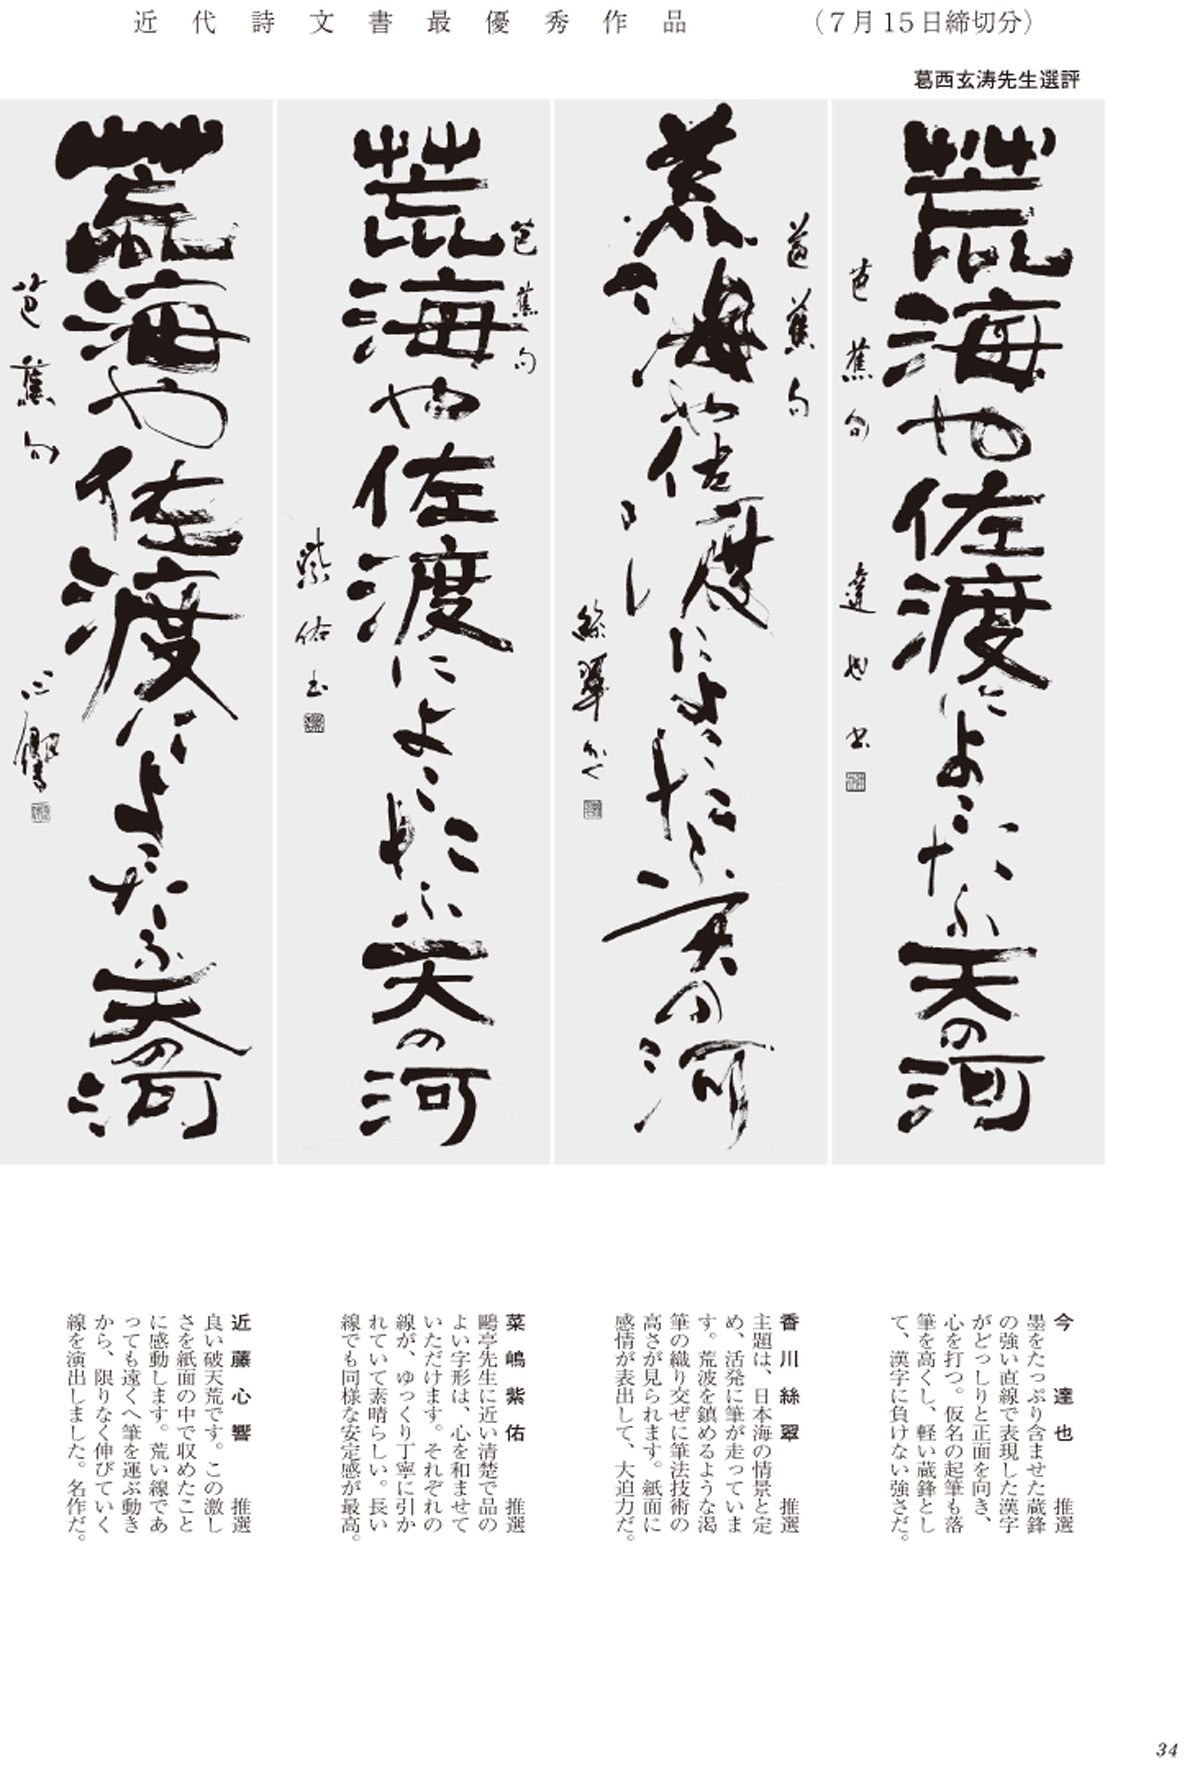 近代詩文書最優秀作品
（7月15日締切分）
葛西玄涛先生選評
荒海や佐渡によこたふ天の河
芭蕉句
達也書
芭蕉句
荒海や佐渡によこたふ天の河
絲翠かく
芭蕉句
荒海や佐渡によこたふ天の河
紫佑书
荒海や佐渡によこたふ天の河
芭蕉句
心響
今達也 推選
墨をたっぷり含ませた蔵鋒
の強い直線で表現した漢字
がどっしりと正面を向き、
心を打つ。仮名の起筆も落
筆を高くし、軽い蔵鋒とし
て、漢字に負けない強さだ。
香川絲翠 推選
主題は、日本海の情景と定
め、活発に筆が走っていま
す。荒波を鎮めるような渇
筆の織り交ぜに筆法技術の
高さが見られます。紙面に
感情が表出して、大迫力だ。
菜嶋紫佑 推選
鷗亭先生に近い清楚で品の
よい字形は、心を和ませて
いただけます。それぞれの
線が、ゆっくり丁寧に引か
れていて素晴らしい。長い
線でも同様な安定感が最高。
近藤心響 推選
良い破天荒です。この激し
さを紙面の中で収めたこと
に感動します。荒い線であ
っても遠くへ筆を運ぶ動き
から、限りなく伸びていく
線を演出しました。名作だ。
34